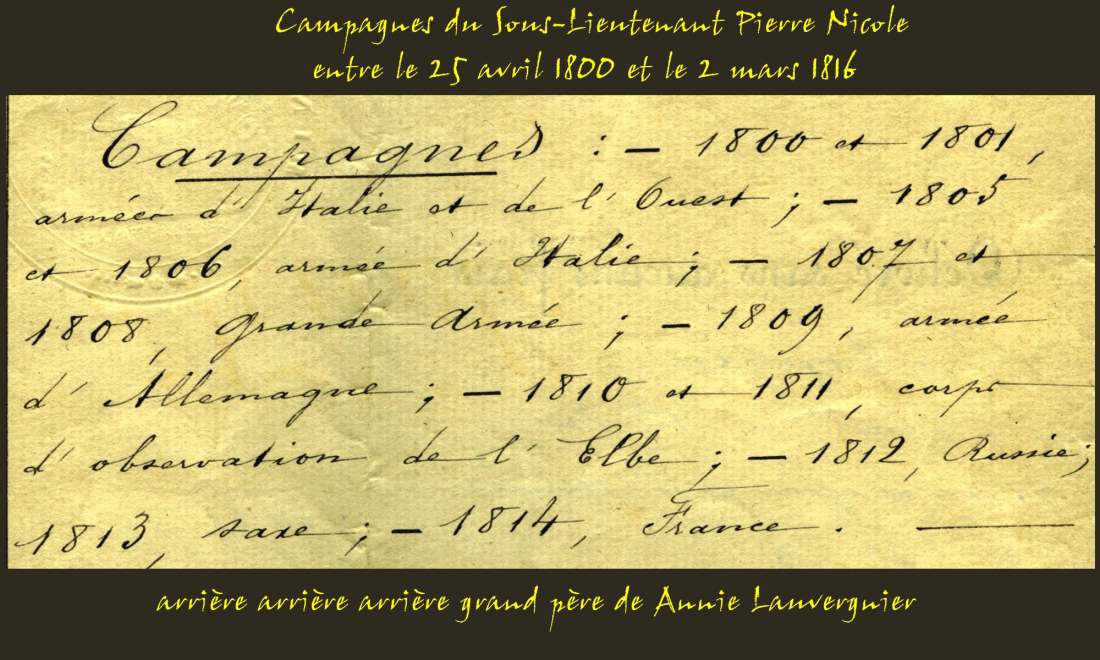 Campagnes du Sous-Lieutenant Pierre Nicole
entre le 25 avril 1800 et le 2 mars 1816
Campagnes : — 1800 et 1801,
armée d'Italie et de l'Ouest ; — 1805
et 1806, armée d'Italie ; — 1807 et
1808, Grande Armée ; — 1809, armée
d'Allemagne ; — 1810 et 1811, corps
d'observation de l'Elbe ; — 1812, Russie ;
1813, saxe ; — 1814, France . —
arrière arrière arrière grand père de Annie Lauvergnier